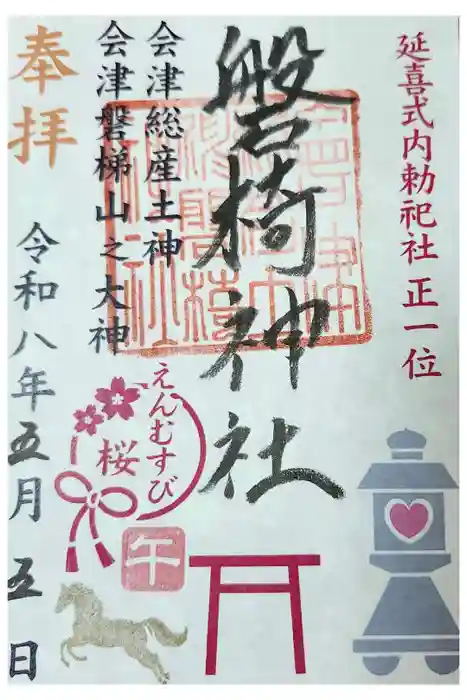 延喜式内勅祀社 正一位
磐椅神社
会津総産土神
会津磐梯山之大神
奉拝
令和八年五月五日
えんむすび
桜
午